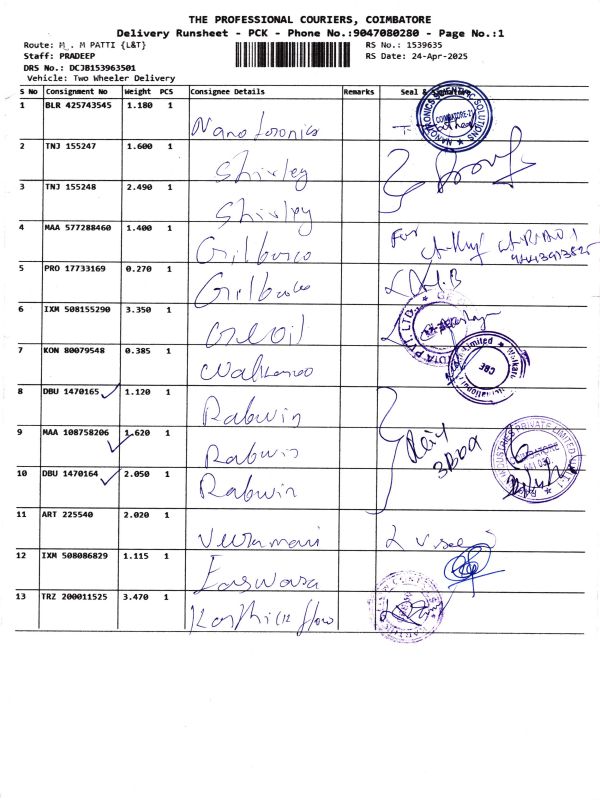 THE PROFESSIONAL COURIERS, COIMBATORE
Delivery Runsheet - PCK - Phone No.:9047080280 - Page No.:1
Route: M_. M PATTI {L&T} RS No.: 1539635
Staff: PRADEEP RS Date: 24-Apr-2025
DRS No.: DCJB153963501
Vehicle: Two Wheeler Delivery
S No Consignment No Weight PCS Consignee Details Remarks Seal &
1 BLR 425743545 1.180 1
2 TNJ 155247 1.600 1 Shirley
3 TNJ 155248 2.490 1 Shirley
4 MAA 577288460 1.400 1 Gilbarco For
5 PRO 17733169 0.270 1 Gilbarco
6 IXM 508155290 3.350 1
7 KON 80079548 0.385 1
8 DBU 1470165 1.120 1 Rabwin
9 MAA 108758206 1.620 1 Rabwin
10 DBU 1470164 2.050 1 Rabwin
11 ART 225540 2.020 1
12 IXM 508086829 1.115 1 Easwara
13 TRZ 200011525 3.470 1